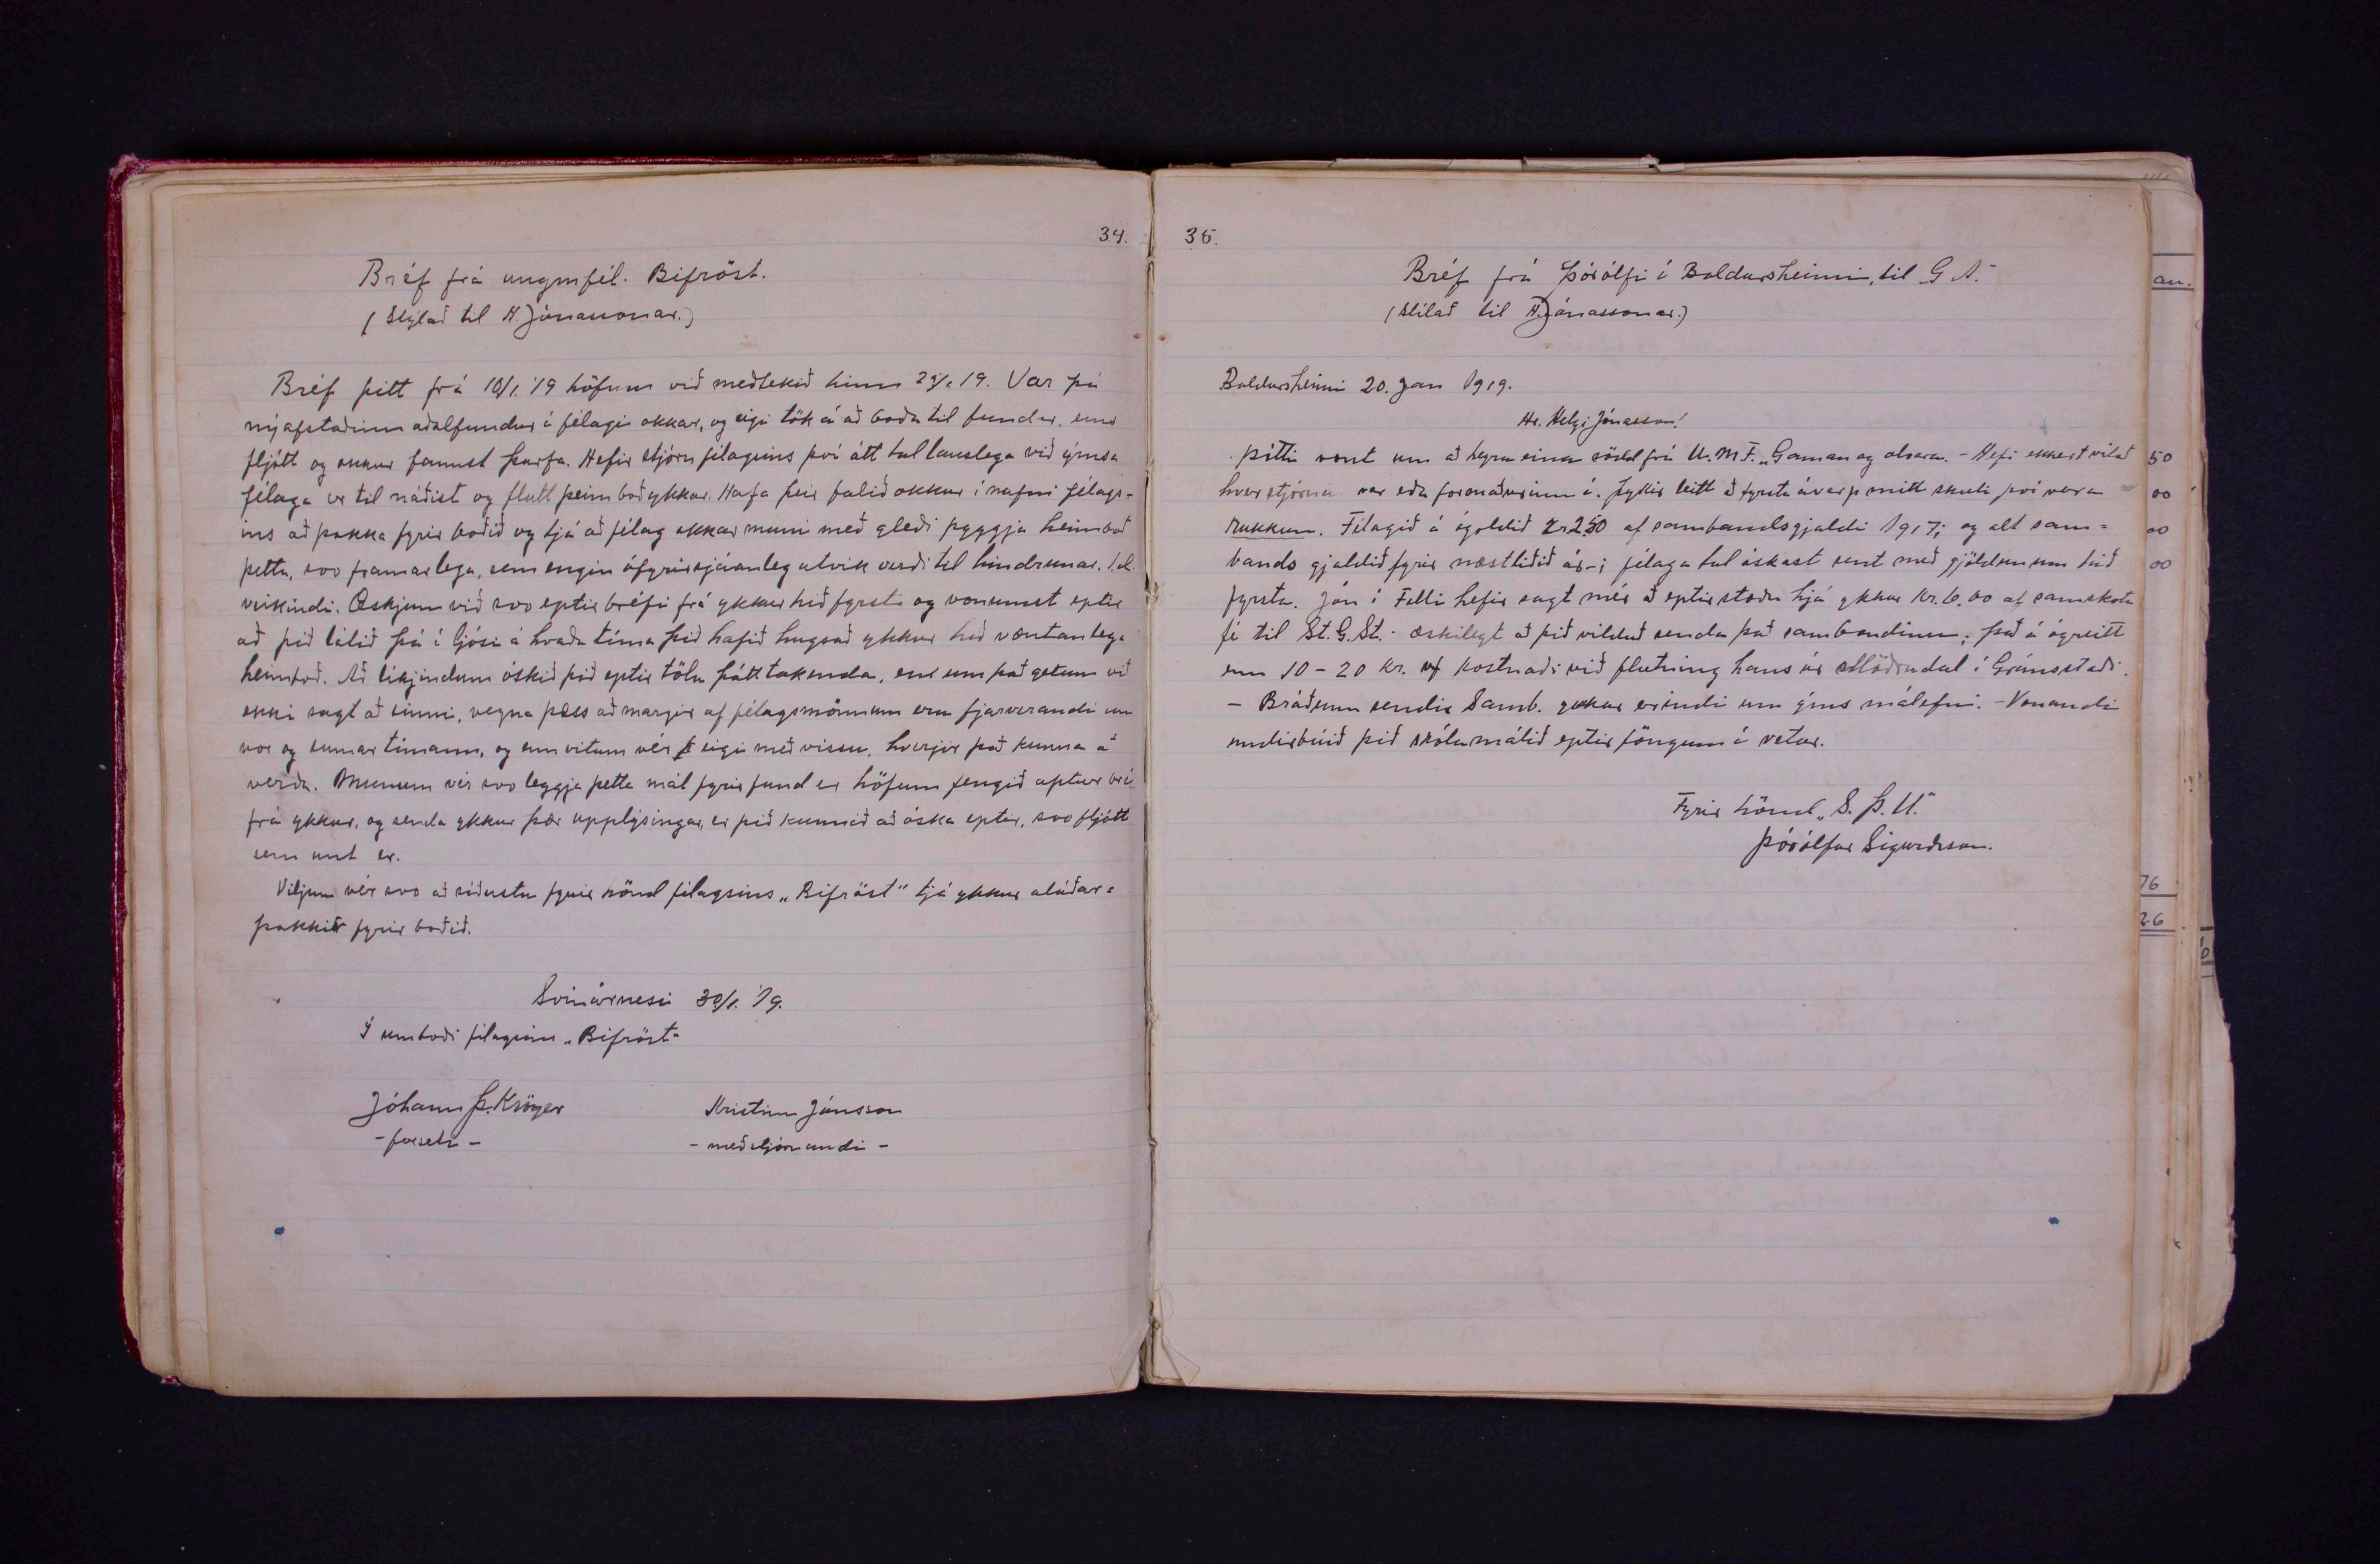 34.
Bréf frá ungmfél. Bifröst.
(Stýlað til H. Jónassonar.)
Bréf þitt frá 10/1. '19 höfum við meðtekið hinn 29/1. 19. Var þá
nýafstaðinn aðalfundur í félagi okkar, og eigi tök á að boða til fundar, eins
fljótt og okkur fannst þurfa. Hefir stjórn félagsins því átt tal lauslega við ýmsa
félaga er til náðist og flutt þeim boð ykkar. Hafa þeir falið okkur í nafni félags=
ins að þakka fyrir boðið og tjá að félag okkar muni með gleði þyggja heimboð
þetta, svo framarlega, sem engin ófyrirsjáanleg atvik verði til hindrunar. t.d.
veikindi. Æskjum við svo eptir bréfi frá ykkur hið fyrsta og vonumst eptir
að þið látið þá í ljósi á hvaða tíma þið hafið hugsað ykkur hið væntanlega
heimboð. Að líkindum óskið þið eptir tölu þátttakenda, en um það getum við
ekki sagt að sinni, vegna þess að margir af félagsmönnum eru fjarverandi um
vor og sumar tímann, og enn vitum vér eigi með vissu, hverjir það kunna að
verða. Munum vér svo leggja þetta mál fyrir fund er höfum fengið aptur bréf
frá ykkur, og senda ykkur þær upplýsingar, er þið kunnið að óska eptir, svo fljótt
sem unt er.
Viljum vér svo að síðustu fyrir hönd félagsins „Bifröst" tjá ykkur alúðar=
þakkir fyrir boðið.
Svínárnesi 30/1. '19.
Í umboði félagsins „Bifröst"
Jóhann Þ. Kröyer
Kristinn Jónsson
- forseti -
- meðstjórnandi -
35.
Bréf frá Þórólfi í Baldursheimi, til „G. A."
(Stílað til H. Jónassonar.)
Baldursheimi 20. Jan 1919.
Hr. Helgi Jónasson!
Þætti vænt um að heyra eina rödd frá U.M.F. „Gaman og alvara. - Hefi ekkert vitað
hver stjórna var eða formaðurinn á. Þykir leitt að fyrsta ávarp mitt skuli því vera
rukkun. Félagið á ógoldið kr 2.50 af sambandsgjaldi 1917; og alt sam=
bands gjaldið fyrir næstliðið ár - félaga tal óskast sent með gjöldunum hið
fyrsta. Jón í Felli hefir sagt mér að eptirstæðu hjá ykkur kr. 6.00 af samskota
fé til St. G. St. - æskilegt að þið vilduð senda það sambandinu; það á ógreitt
enn 10 - 20 kr. af kostnaði við flutning hans úr Möðrudal í Grímsstaði.
- Bráðum sendir Samb. ykkur erindi um ýms málefni. - Vonandi
undirbúið þið skólamálið eptir föngum í vetur.
Fyrir hönd „S. Þ. U."
Þórólfur Sigurðsson.
au.
50
00
00
00
76
26